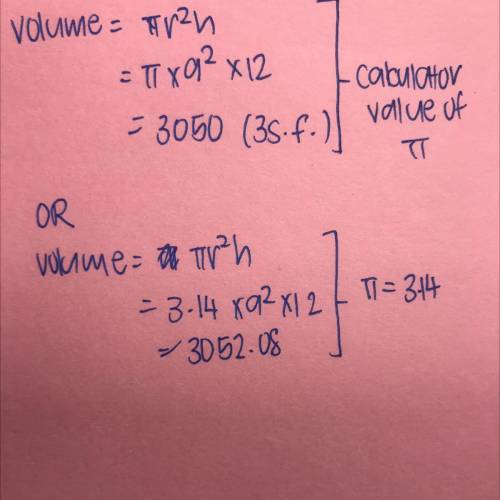 volume = πr²h
= π x 9² x 12
= 3050 (3s.f.)
calculator value of π
OR
volume = πr²h
= 3.14 x 9² x 12
= 3052.08
π = 3.14